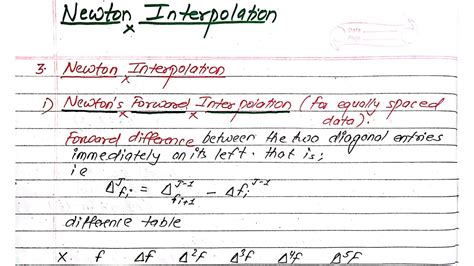 Newton Interpolation
3. Newton Interpolation
i) Newton's Forward Interpolation (for equally spaced
data).
Forward difference between the two diagonal entries
immediately on its left. that is;
ie
Δ^J f_i = Δ^{J-1} f_{i+1} - Δ f_i^{J-1}
difference table
x. f Δf Δ²f Δ³f Δ⁴f Δ⁵f